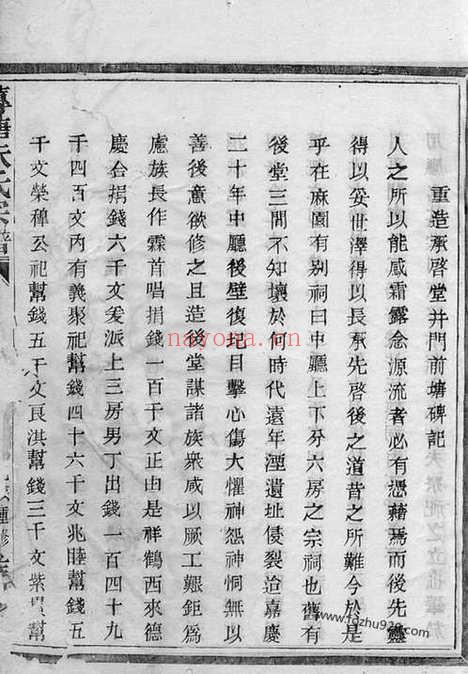 重造承啓堂并門前塘碑記
人之所以能感霜露念源流者必有憑藉焉而後先靈
得以妥世澤得以長承先啓後之道昔之所難今於是
乎在麻園有别祠曰中廳上下分六房之宗祠也舊有
後堂三間不知壞於何時代遠年湮遺址侵裂迨嘉慶
二十年中廳後壁復圮目擊心傷大懼神怨神恫無以
善後意欲修之且造後堂謀諸族衆咸以厥工艱鉅爲
慮族長作霖首唱捐錢一百千文正由是祥鶴西來德
慶合捐錢六千文爰派上三房男丁出錢一百四十九
千四百文内有義聚祀幫錢四十六千文兆陸幫錢五
千文榮稗公祀幫錢五千文良淇幫錢三千文紫貴幫
朱氏宗譜
重修
nayona.cn
www.fgzhu928.com